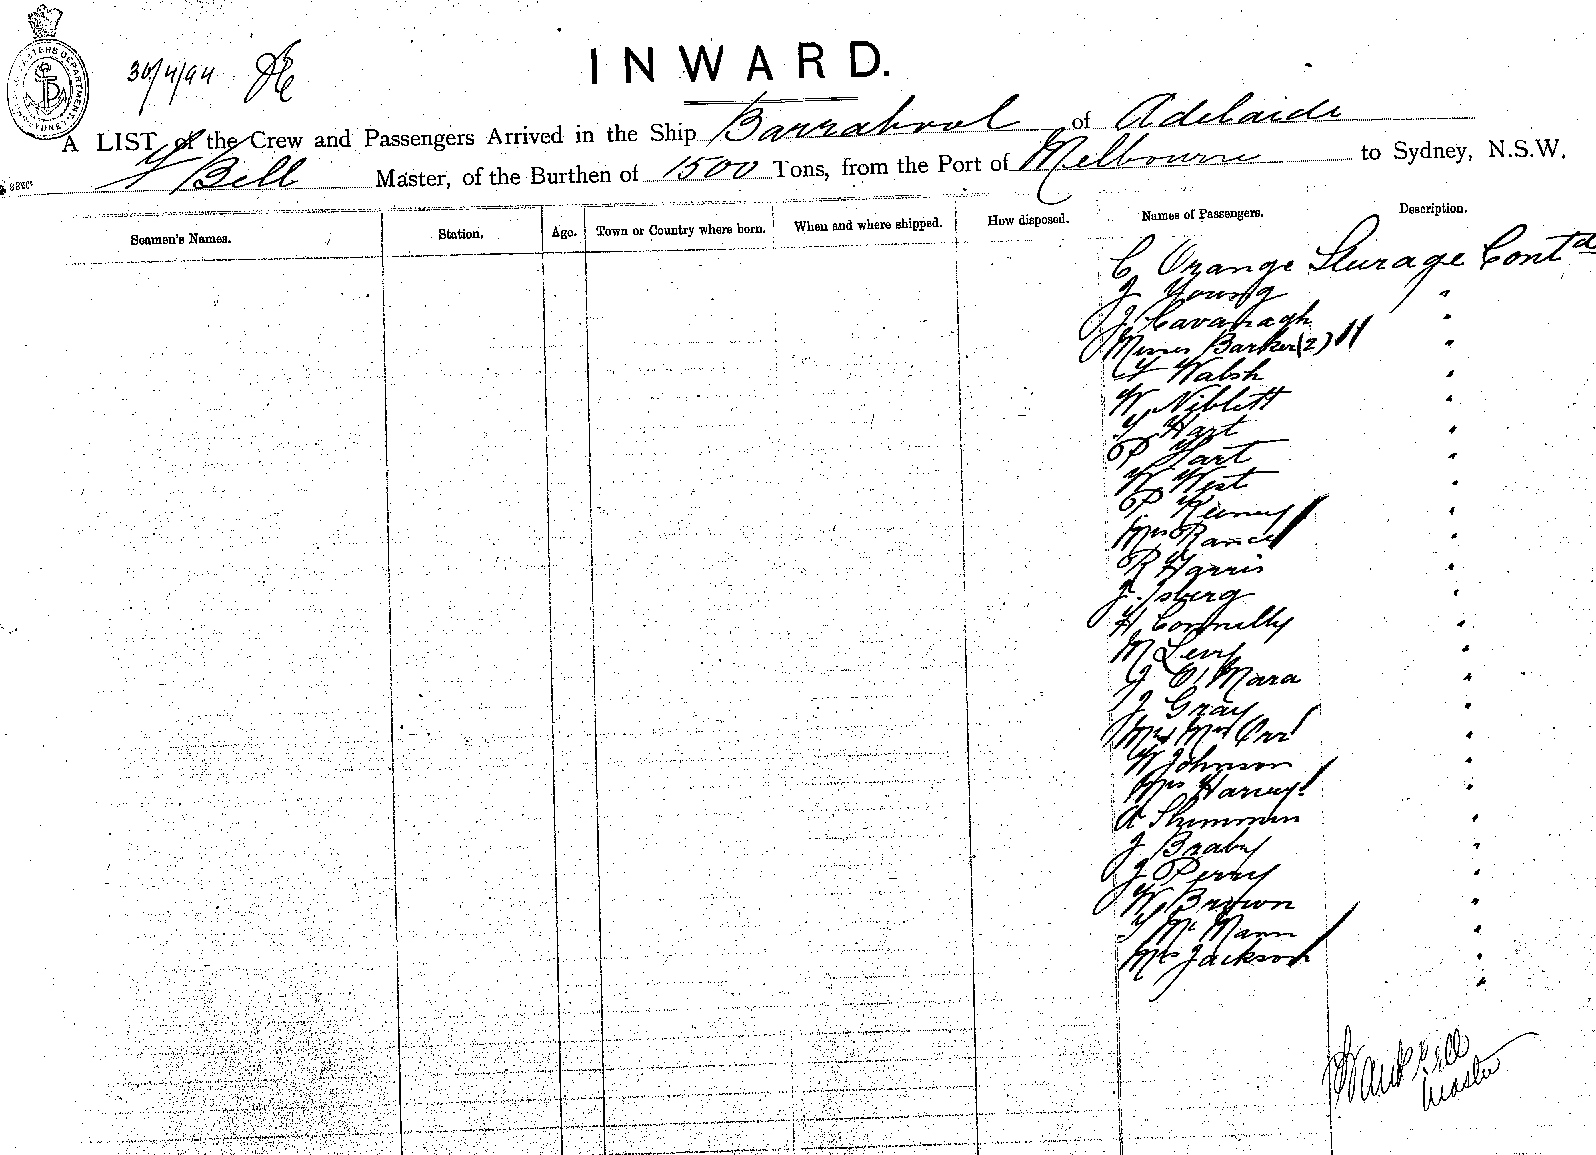 30/4/94
INWARD.
A LIST of the Crew and Passengers Arrived in the Ship Barrabool of Adelaide
F Bell Master, of the Burthen of 1500 Tons, from the Port of Melbourne to Sydney, N.S.W.
Seamen's Names. Station. Age. Town or Country where born. When and where shipped. How disposed. Names of Passengers. Description.
C Orange Steerage Contd
J Young "
J Cavanagh "
Misses Barker (2) "
Walsh "
W Niblett "
Hart "
P Hart "
W West "
P "
Mrs "
R Harris "
J. Isberg "
H Connelly "
M Levy "
J O'Mara "
J Gray "
Mr & Mrs Orr "
W Johnson "
Mrs Harvey "
A Shimmin "
J Braby "
J Perry "
W Brown "
Mc Mann "
Mrs Jackson "
"
Frank Bell
Master